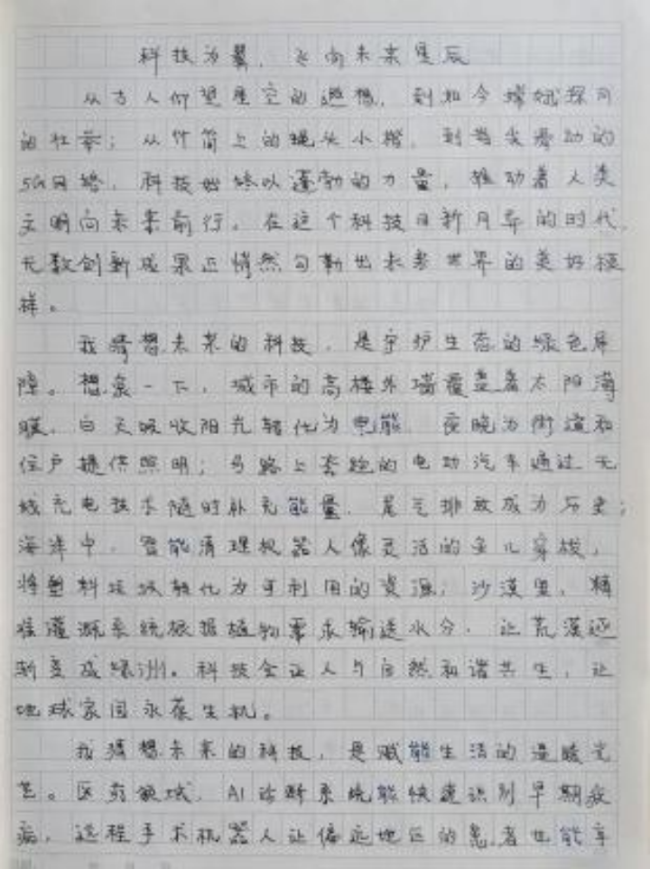 科技为翼，飞向未来星辰
从古人仰望星空的遐想，到如今嫦娥探月
的壮举；从竹简上的蝇头小楷，到指尖滑动的
5G网络，科技始终以蓬勃的力量，推动着人类
文明向未来前行。在这个科技日新月异的时代，
无数创新成果正悄然勾勒出未来世界的美好模
样。
我猜想未来的科技，是守护生态的绿色屏
障。想象一下，城市的高楼外墙覆盖着太阳薄
膜，白天吸收阳光转化为电能，夜晚为街道和
住户提供照明；马路上奔跑的电动汽车通过无
线充电技术随时补充能量，尾气排放成为历史；
海洋中，智能清理机器人像灵活的鱼儿穿梭，
将塑料垃圾转化为可利用的资源；沙漠里，精
准灌溉系统根据植物需求输送水分，让荒漠逐
渐变成绿洲。科技会让人与自然和谐共生，让
地球家园永葆生机。
我猜想未来的科技，是赋能生活的温暖光
芒。医疗领域，AI诊断系统能快速识别早期疾
病，远程手术机器人让偏远地区的患者也能享